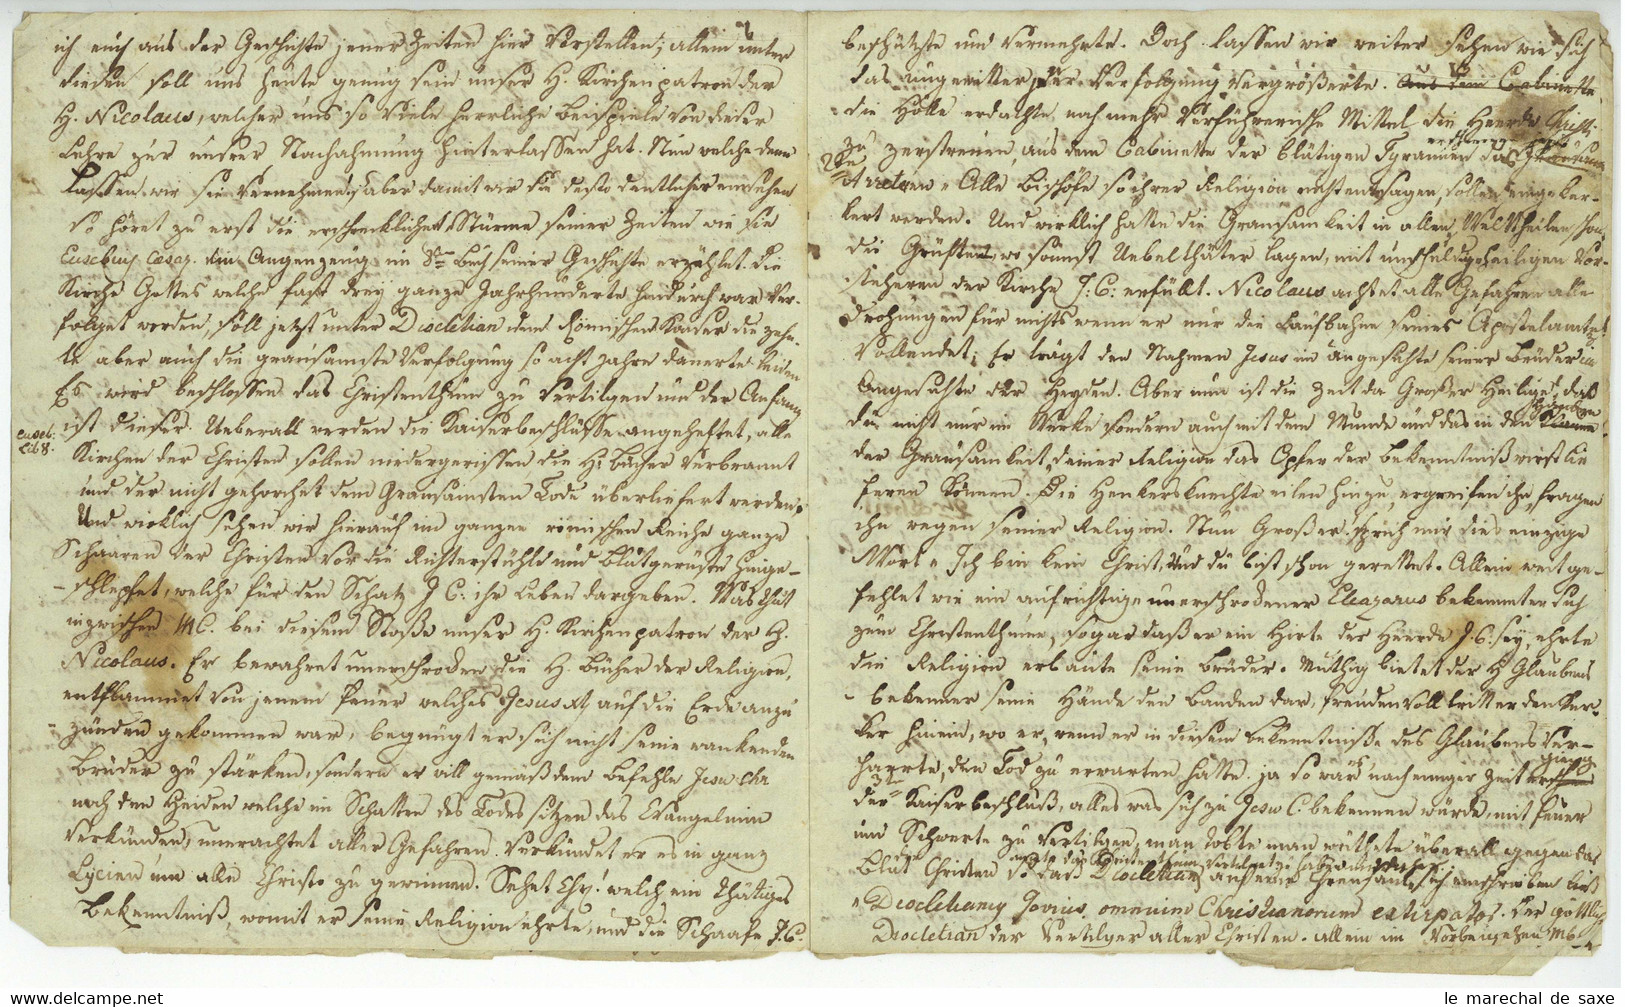 ich euch aus der Geschichte jener Zeiten hier vorstellen; allein unter
diesen soll uns heute genug sein unser H. Kirchenpatron der
H. Nicolaus, welcher uns so viele herrliche Beispiele von dieser
Lehre zur unsrer Nachahmung hinterlassen hat. Nun welche denn
Lassen wir sie vernehmen; aber damit wir sie desto deutlicher einsehen
so höret zu erst die erschrecklichen Stürme seiner Zeiten wie sie
Eusebius Cesar. ein Augenzeug im 8ten Buch seiner Geschichte erzählet. Die
Kirche Gottes welche fast drey ganze Jahrhunderte hindurch war ver-
folget worden, soll jetzt unter Diocletian dem Römischen Kaiser die zehn-
te aber auch die grausamste Verfolgung so acht Jahre dauerte leiden
Es wird beschlossen das Christenthum zu vertilgen und der Anfang
ist dieser. Ueberall werden die Kaiserbeschlüsse angeheftet, alle
euseb: Lib 8.
Kirchen der Christen sollen niedergerissen die H. Bücher verbrannt
und der nicht gehorchet dem Grausamsten Tode überliefert werden.
Und wirklich sehen wir hierauf im ganzen römischen Reiche ganze
Schaaren der Christen vor die Richterstühle und Blutgerüste hinge-
schlepfet, welche für den Schatz J C: ihr Leben dargeben. Was thut
inzwischen MC. bei diesem Stoße unser H. Kirchenpatron der H.
Nicolaus. Er bewahret unerschrocken die H. Bücher der Religion,
entflammet von jenem Feuer welches Jesus xt auf die Erde anzu
zünden gekommen war, begnügt er sich nicht seine wankenden
Brüder zu stärken, sondern er will gemäß dem Befehle Jesu chr
noch den Heiden welche im Schatten des Todes sitzen das Evangelium
verkünden, unerachtet aller Gefahren verkündet er es in ganz
Lycien um alle Christo zu gewinnen. Sehet Chr! welch ein thätiges
Bekenntniß, womit er seine Religion ehrte, und die Schaafe J. C.
beschützte und vermehrte. Doch lassen wir weiter sehen wie sich
das ungewitter der Verfolgung vergrößerte. Aus dem Cabinette
die Hölle erdachte noch mehr verführerische Mittel die Heerde Christi
zu zerstreuen, aus dem Cabinette der blutigen Tyrannen
2te Arreten „ Alle Bischöfe so ihrer Religion nicht entsagen, sollen eingeker-
kert werden. Und wirklich hatte die Grausamkeit in allen Welttheilen schon
die Grüften, wo sonnst Uebelthäter lagen, mit unschuldig heiligen Vor-
stehern der Kirche J: C: erfüllt. Nicolaus achtet alle Gefahren alle
Drohungen für nichts wenn er nur die Laufbahn seines Apostelamtes
vollendet; Er trägt den Nahmen Jesus im Angesichte seiner Brüder im
Angesichte der Heyden. Aber nun ist die Zeit da Großer Heilige, daß
du nicht nur im Werke sondern auch mit dem Munde und das in den
der Grausamkeit, deiner Religion das Opfer der Bekenntniß wirst lie
feren können. Die Henkersknechte eilen hinzu, ergreifen ihn, fragen
ihn wegen seiner Religion. Nun Großer! sprich nur dies einzige
Wort „ Ich bin kein Christ, und du bist schon gerettet. Allein weit ge-
fehlet wie ein aufrichtiger unerschrockener Eleazarus bekennet er sich
zum Christenthum, sogar daß er ein Hirte der Heerde J. C. sey, ehrte
die Religion erbaute seine Brüder. Muthig bietet der H Glaubens
bekenner seine Hände den Banden dar, freudenvoll tritt er den Ker-
ker hinein, wo er, wenn er in diesem Bekenntniße des Glaubens ver-
harrte, den Tod zu erwarten hatte. ja so war nach einiger Zeit
der 3te Kaiserbeschluß, alles was sich zu Jesu C. bekennen würde, mit Feuer
und Schwerte zu vertilgen, man tobte man wüthete überall gegen das
Blut Christen so daß Diocletian auf eine Ehrensäule sich einschreiben ließ
„ Diocletianus Jovius omnium Christianorum extirpator. Der göttliche
Diocletian der Vertilger aller Christen. allein im Vorbeigehen
le-marechal-de-saxe.com
le marechal de saxe